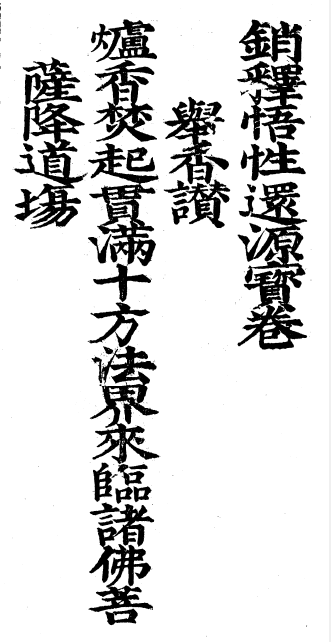 銷釋悟性還源寶卷
舉香讃
爐香焚起貫滿十方法界來臨諸佛菩
薩降道場